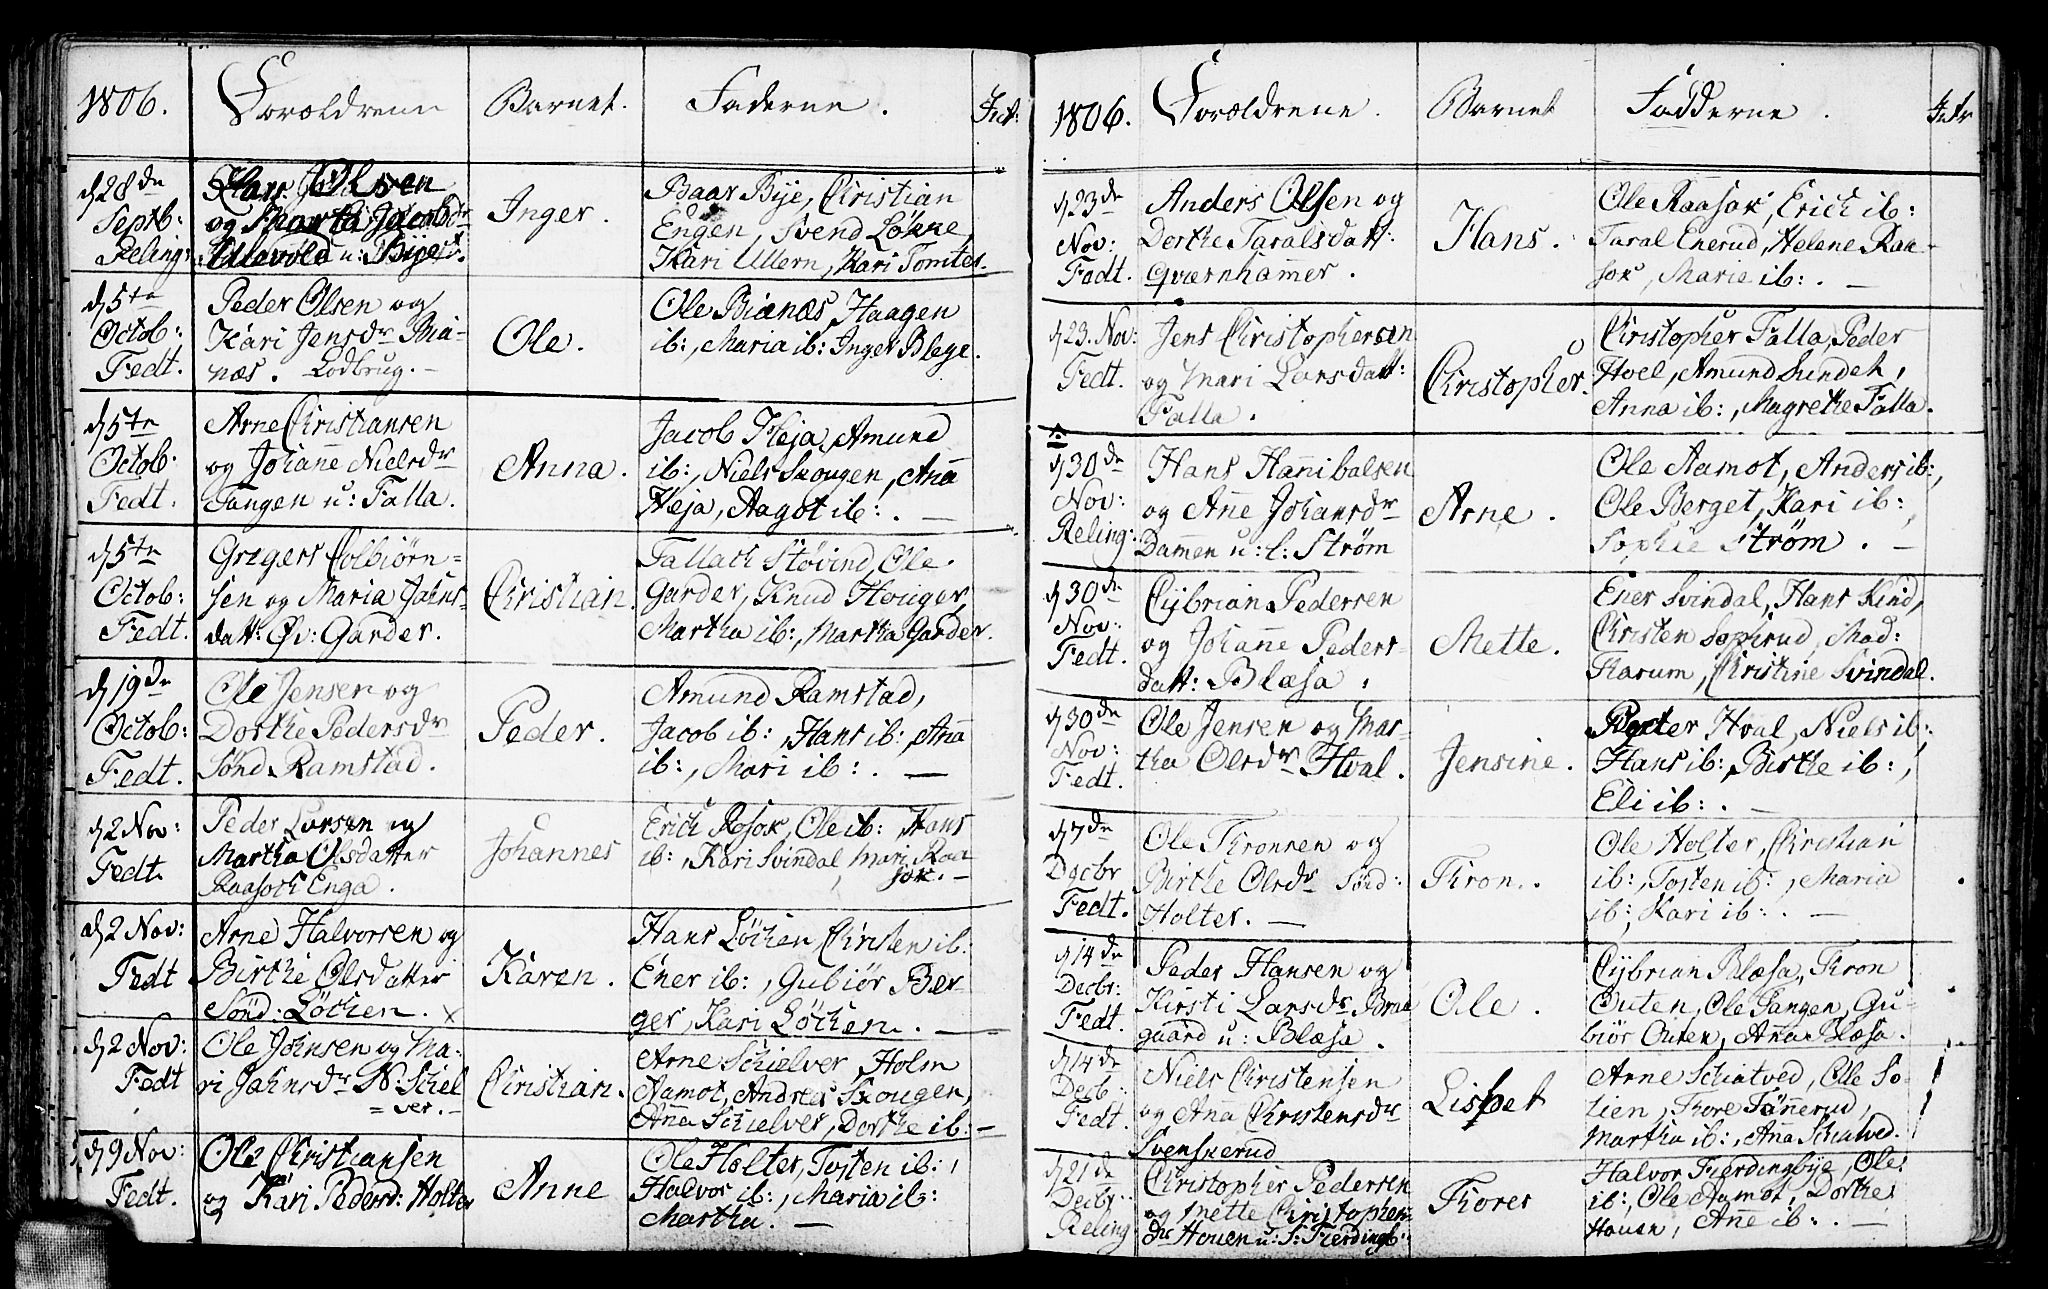 1806. Forældrene Barnet. Faderne. Int:
d 28de Septb: Reling:
Hans Olsen
og Martha Jacobdr
Ullevold u: Bijest.
Inger.
Baar Bije, Christian
Engen, Svend Løkne,
Kari Ullern, Kari Tomter.
d 5te Octob: Fedt.
Peder Olsen og
Kari Jensdr Biæ-
næs. Lodbrug. -
Ole.
Ole Biænæs Haagen
ib:, Maria ib: Inger Blege.
d 5te Octob: Fedt.
Arne Christiansen
og Johanne Nielsdr
Tangen u: Falla.
Anna.
Jacob Heja, Amund
ib:, Niels Skougen, Ana
Heja, Aagot ib: . —
d 5te Octob: Fedt.
Gregers Colbiørn-
sen og Maria Jahns-
datt: Øv: Garder.
Christian.
Tallach Støvind, Ole
Garder, Knud Houger,
Martha ib:, Martha Garder.
d 19de Octob: Fedt.
Ole Jensen og
Dorthe Pedersdr
Sønd. Ramstad.
Peder.
Amund Ramstad,
Jacob ib:, Hans ib:, Ana
ib:, Mari ib: . —
d 2 Nov: Fedt.
Peder Larsen og
Martha Olsdatter
Raasoch Enga.
Johannes
Erich Rosok, Ole ib: Hans
ib:, Kari Svindal, Mari Raa
sok. -
d 2 Nov: Fedt
Arne Halvorsen og
Birthe Olsdatter
Sønd: Løchen. x
Karen.
Hans Løchen Christen ib:
Ener ib:, Gubiør Ber-
ger, Kari Løchen. —
d 2 Nov: Fedt
Ole Johnsen og Ma-
ri Jahnsdr N: Schiel
= ver. -
Christian.
Arne Schielver, Holm
Aamot, Andreas Skougen,
Anna Schielver, Dorthe ib: -
d 9 Nov: Fedt.
Ole Christiansen
og Kari Pedersd: Holter
Anne
Ole Holter, Tosten ib:,
Halvor ib:, Maria ib:
Martha. —
1806. Forældrene. Barnet Fadderne. Intr
d 23de Nov: Fedt.
Anders Olsen og
Dorthe Taralsdatt:
Qværnhammer.
Hans.
Ole Raasok, Erich ib:
Taral Enerud, Helene Raa-
sok, Marie ib: . —
d 23. Nov: Fedt.
Jens Christophersen
og Mari Larsdatt:
Falla.
Christopher.
Christopher Falla, Peder
Hoel, Amund Sundeh,
Anna ib:, Magrethe Falla.
d 30de Nov: Reling:
Hans Hannibalsen
og Anne Johansdr
Dammen u: l: Strøm
Arne.
Ole Aamot, Anders ib:,
Ole Berget, Kari ib:,
Sophie Strøm. —
d 30de Nov: Fedt.
Cybrian Pedersen
og Johanne Peders-
datt: Blæsa.
Mette.
Ener Svindal, Hans Kind,
Christen Sophrud, Mad:
Harum, Christine Svindal.
d 30de Nov: Fedt.
Ole Jensen og Mar-
tha Olsdr Hval.
Jensine.
Peter Hval, Niels ib:
Hans ib: Birthe ib:,
Eli ib: . —
d 7de Decbr Fedt.
Ole Thronsen og
Birthe Olsdr Sønd:
Holter. —
Thron.
Ole Holter, Christian
ib:, Tosten ib:, Maria
ib:, Kari ib: . —
d 14de Decbr: Fedt.
Peder Hansen og
Kirsti Larsdr Braa
gaard u: Blæsa.
Ole.
Cybrian Blæsa, Thron
Outen, Ole Tangen, Gu-
biør Outen, Anna Blæsa.
d 14de Decb: Fedt.
Niels Christensen
og Anna Christensdr
Svenskerud
Lisbet
Arne Schiatved, Ole So-
lien, Thore Tønnerud,
Martha ib:, Anna Schiatved.
d 21de Decbr: Reling
Christopher Pedersen
og Mette Christophers
dr Houen u: F: Fierdingb:
Thorer
Halvor Fierdingbye, Ole
ib:, Ole Aamot, Dorthe
Houen, Anne ib: . —